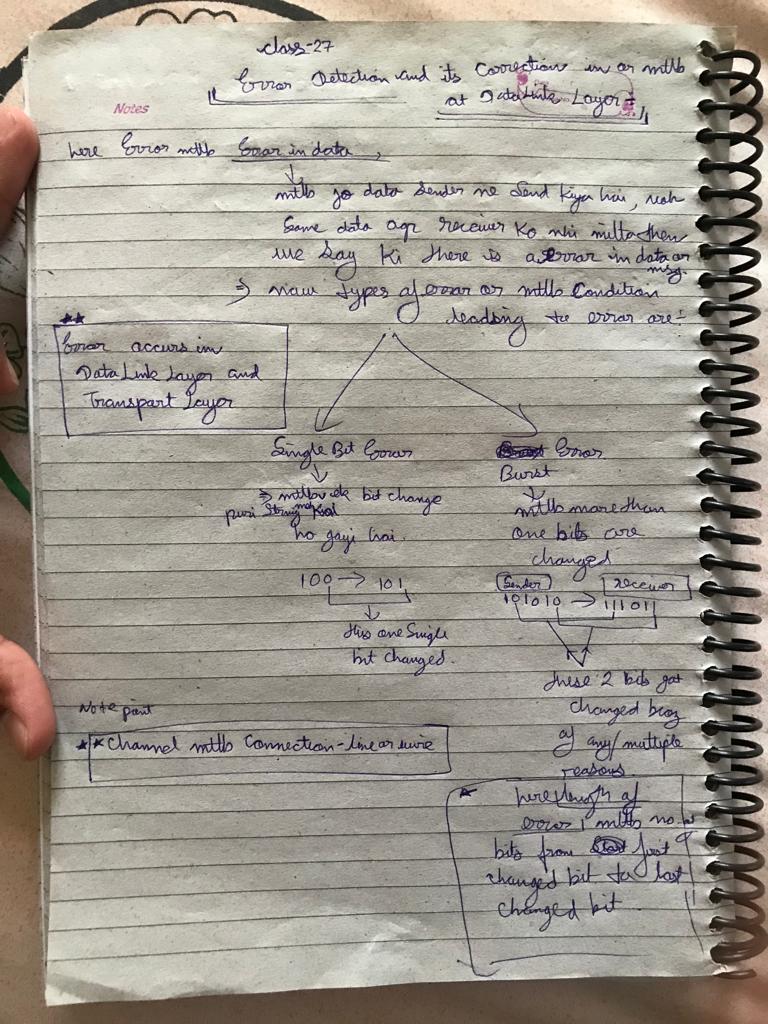 class-27
Error Detection and its Correction in or mtlb
at Data Link Layer :-
Notes
here Error mtlb Error in data,
mtlb jo data sender ne Send kiya hai, woh
Same data agr receiver ko nhi milta then
we say ki there is a error in data or
msg.
⇒ now types of error or mtlb Condition
leading to error are:-
★★
Error occurs in
Data Link Layer and
Transport Layer
Single Bit Error
⇒ mtlb ek bit change
puri String meh
ho gayi hai.
100 → 101
this one Single
bit changed.
Error
Burst
mtlb more than
one bits are
changed
Sender receiver
101010 → 111011
these 2 bits got
changed bcoz
of any/multiple
reasons.
Note point
★★ Channel mtlb Connection-line or wire
★ here length of
error, mtlb no. of
bits from first
changed bit to last
changed bit